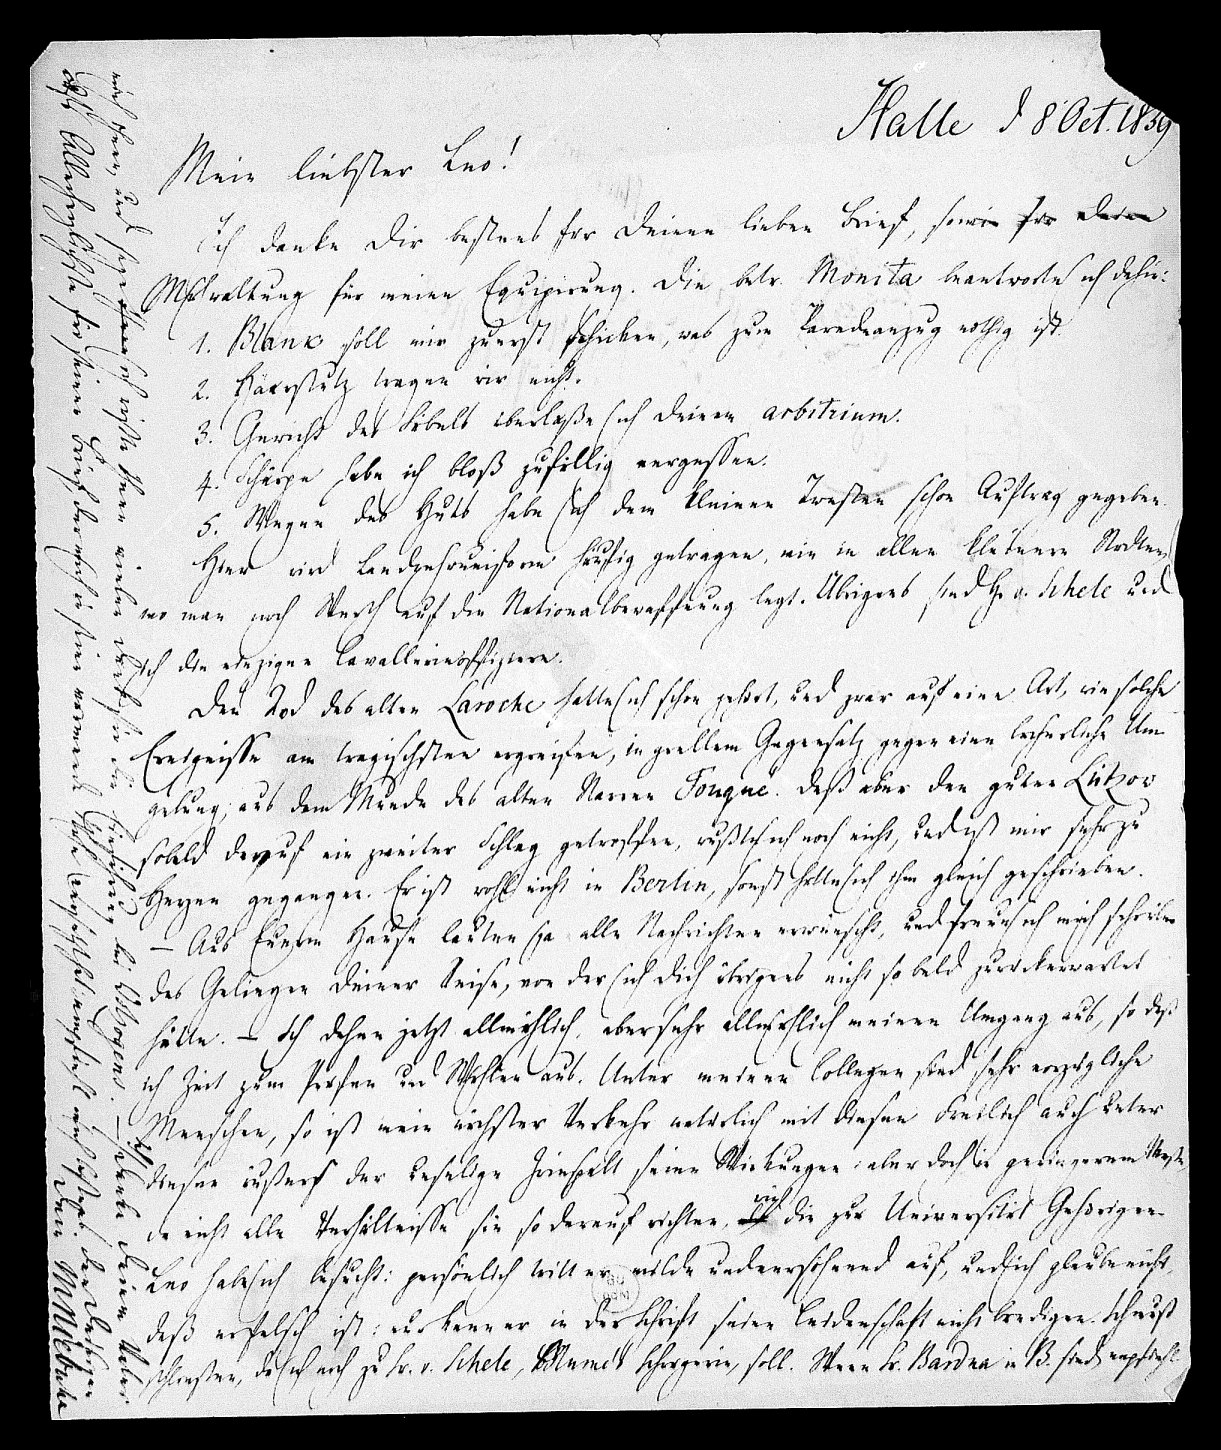 Halle d 8 Oct. 1839
Mein liebster Leo!
Ich danke Dir bestens for Deinen lieben Brief, sowie for Deine
Mhwaltung für meine Equipirung. Die betr. Monita beantworte ich dahin:
1. Blank soll mir zuerst schicken, was zum Paradeanzug nöthig ist.
2. Haarstutz tragen wir nicht.
3. Gewicht des Säbels überlaße ich Deinem arbitrium.
4. Schärpe habe ich bloß zufällig vergessen.
5. Wegen des Huts habe ich dem kleinen Tresken schon Auftrag gegeben.
Hier wird Landwehruniform häufig getragen, wie in allen kleinern Städten,
wo man noch Werth auf die Nationalbewaffnung legt. Übrigens sind H. v. Schele und
ich die einzigen Cavallerieoffiziere.
Den Tod des alten Laroche hatte ich schon gehört, und zwar auf eine Art, wie solche
Ereignisse am tragischsten ergreifen, in grellem Gegensatz gegen eine lächerliche Um-
gebung, aus dem Munde des alten Narren Fouqué. Daß aber den guten Lützow
sobald darauf ein zweiter Schlag getroffen, wußte ich noch nicht, und ist mir sehr zu
Herzen gegangen. Er ist wohl nicht in Berlin, sonst hätte ich ihm gleich geschrieben.
– Aus Eurem Hause lauten ja alle Nachrichten erwünscht, und freue ich mich
des Gelingens Deiner Reise, von der ich Dich übrigens nicht so bald zurückerwartet
hätte. – Ich dehne jetzt allmählich, aber sehr allmählich meinen Umgang aus, so daß
ich Zeit zum Prüfen und Wählen aus. Unter meinen Collegen sind sehr vorzügliche
Menschen, so ist mein nächster Verkehr natürlich mit diesen. Freilich auch unter
diesen äußert der unselige Zwiespalt seine Wirkungen, aber doch in geringerem Maße,
da nicht alle Verhältnisse sie so darauf richten, wie die zur Universität Gehörigen.
Leo habe ich besucht: persönlich tritt er milde und versöhnend auf, und ich glaube nicht,
daß er falsch ist: nur kann er in der Schrift seine Leidenschaft nicht bändigen. Ich muß
schließen, da ich noch zu Fr. v. Schele, Blume's Schwägerin, soll. Wenn Fr. Bardua in B. sind, empfiehl
mich ihnen, und sage ihnen ich wisse ihnen vielen Dank für die Einführung bei
Danke Deinem Vater
aufs Allerherzlichste für seinen Brief, der mich in seiner
Dein